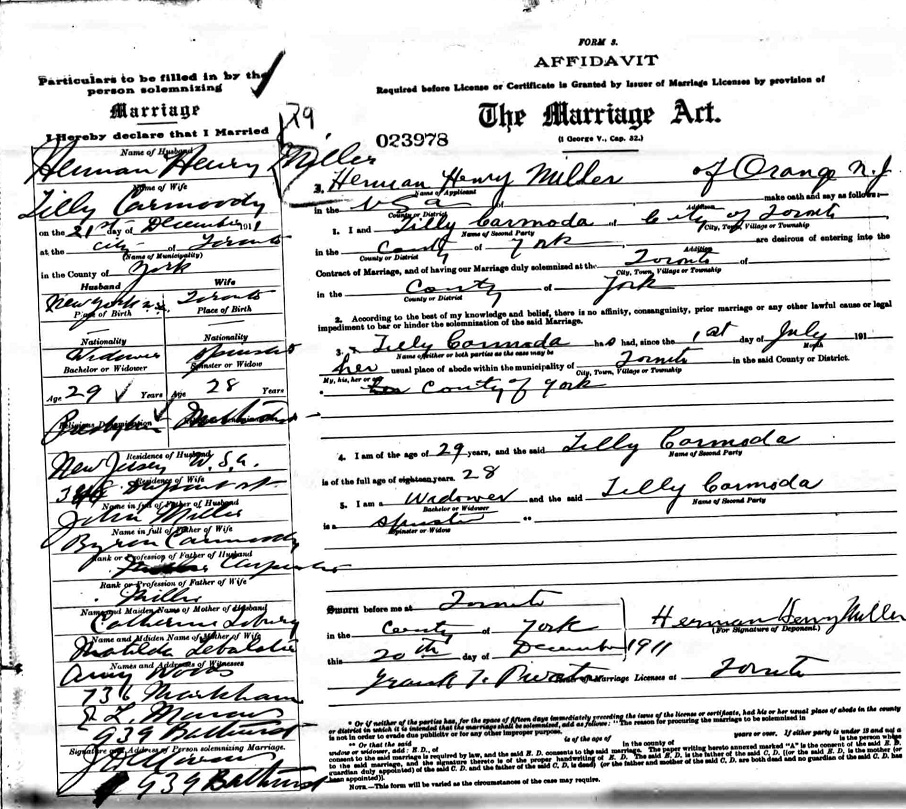 Particulars to be filled in by the
person solemnizing
Marriage
I Hereby declare that I Married
Name of Husband
Herman Henry Miller
Name of Wife
Tilly Carmoody
on the 21st day of December 1911
at the City of Toronto
(Name of Municipality)
in the County of York
Husband Wife
New York Toronto
Place of Birth Place of Birth
Nationality Nationality
Widower Spinster
Bachelor or Widower Spinster or Widow
Age 29 Years Age 28 Years
Religious Denomination
Residence of Husband
New Jersey U.S.A.
Residence of Wife
Dupont st.
Name in full of Father of Husband
John Miller
Name in full of Father of Wife
Byron Carmoody
Rank or Profession of Father of Husband
Carpenter
Rank or Profession of Father of Wife
Miller
Name and Maiden Name of Mother of Husband
Catherine
Name and Maiden Name of Mother of Wife
Matilda
Names and Addresses of Witnesses
736 Markham
939 Bathurst
Signature and Address of Person solemnizing Marriage.
939 Bathurst
29
FORM 3.
AFFIDAVIT
Required before License or Certificate is Granted by Issuer of Marriage Licenses by provision of
The Marriage Act.
023978
(1 George V., Cap. 32.)
I, Herman Henry Miller of Orange N.J.
Name of Applicant Addition
in the U S a make oath and say as follows:
County or District
1. I and Tilly Carmoda of City of Toronto
Name of Second Party City, Town, Village or Township
in the County of York, are desirous of entering into the
County or District Addition
Contract of Marriage, and of having our Marriage duly solemnized at the Toronto of
City, Town, Village or Township
in the County of York
County or District
2. According to the best of my knowledge and belief, there is no affinity, consanguinity, prior marriage or any other lawful cause or legal
impediment to bar or hinder the solemnization of the said Marriage.
3. Tilly Carmoda has had, since the 1st day of July 191
Name of either or both parties as the case may be Month
her usual place of abode within the municipality of Toronto in the said County or District.
My, his, her or our City, Town, Village or Township
County of York
4. I am of the age of 29 years, and the said Tilly Carmoda
Name of Second Party
is of the full age of eighteen years. 28
5. I am a Widower and the said Tilly Carmoda
Bachelor or Widower Name of Second Party
is a Spinster "
Spinster or Widow
Sworn before me at Toronto
in the County of York
Herman Henry Miller
(For Signature of Deponent.)
this 20th day of December 1911
Frank of Marriage Licenses at Toronto
* Or if neither of the parties has, for the space of fifteen days immediately preceding the issue of the license or certificate, had his or her usual place of abode in the county
or district in which it is intended that the marriage shall be solemnized, add as follows: "The reason for procuring the marriage to be solemnized in
is not in order to evade due publicity or for any other improper purpose.
** Or that the said is of the age of years or over. If either party is under 18 and not a
widow or widower, add: B. D., of in the county of is the person whose
consent to the said marriage is required by law, and the said B. D. consents to the said marriage. The paper writing hereto annexed marked "A" is the consent of the said B. D.
to the said marriage, and the signature thereto is of the proper handwriting of B. D. The said B. D. is the father of the said C. D. [or the said B. D. is the mother (or
guardian duly appointed) of the said C. D. and the father of the said C. D. is dead] (or the father and mother of the said C. D. are both dead and no guardian of the said C. D. has
been appointed)].
NOTE.—This form will be varied as the circumstances of the case may require.